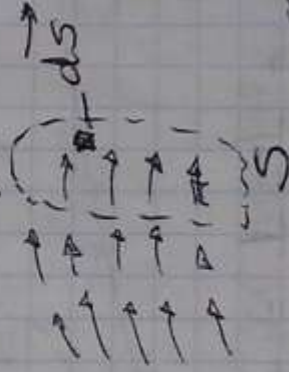 dS
S